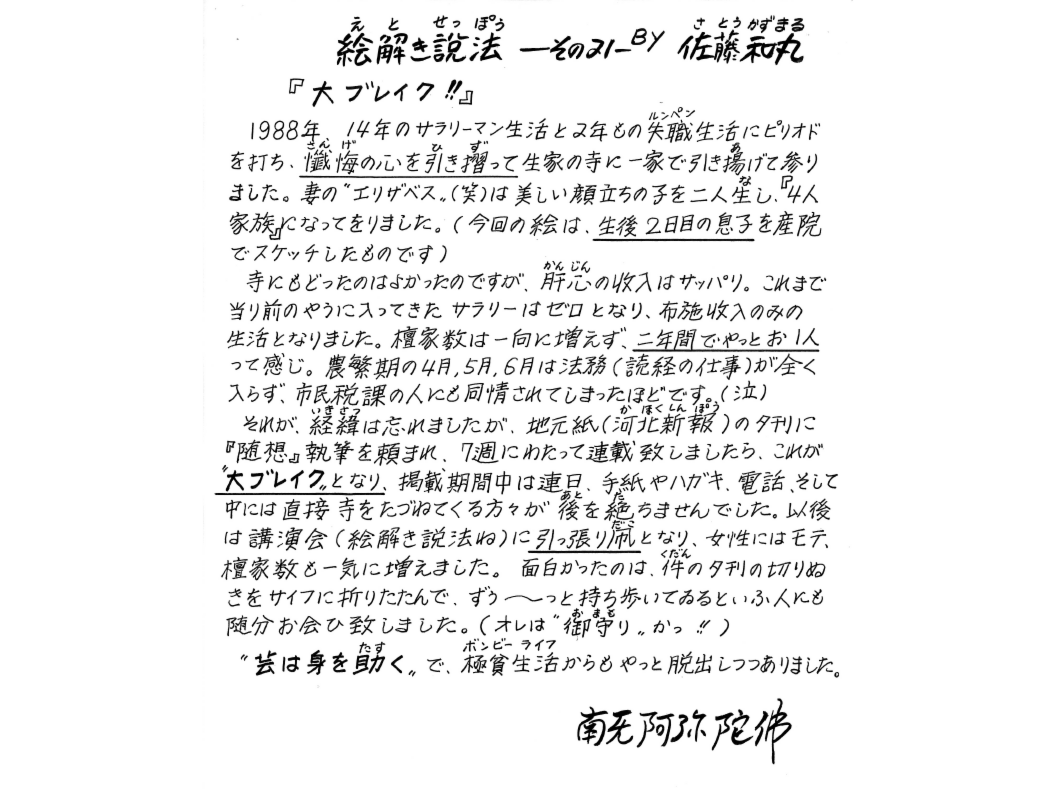 絵解き説法 ―その21― BY 佐藤和丸
『大ブレイク!!』
1988年、14年のサラリーマン生活と2年もの失職生活にピリオド
を打ち、懺悔の心を引き摺って生家の寺に一家で引き揚げて参り
ました。妻の〝エリザベス〟(笑)は美しい顔立ちの子を二人生し、『4人
家族』になってをりました。(今回の絵は、生後2日目の息子を産院
でスケッチしたものです)
寺にもどったのはよかったのですが、肝心の収入はサッパリ。これまで
当り前のやうに入ってきたサラリーはゼロとなり、布施収入のみの
生活となりました。檀家数は一向に増えず、二年間でやっとお1人
って感じ。農繁期の4月,5月,6月は法務(読経の仕事)が全く
入らず、市民税課の人にも同情されてしまったほどです。(泣)
それが、経緯は忘れましたが、地元紙(河北新報)の夕刊に
『随想』執筆を頼まれ、7週にわたって連載致しましたら、これが
〝大ブレイク〟となり、掲載期間中は連日、手紙やハガキ、電話、そして
中には直接寺をたづねてくる方々が後を絶ちませんでした。以後
は講演会(絵解き説法ね)に引っ張り凧となり、女性にはモテ、
檀家数も一気に増えました。面白かったのは、件の夕刊の切りぬ
きをサイフに折りたたんで、ずぅ~~っと持ち歩いてゐるといふ人にも
随分お会ひ致しました。(オレは〝御守り〟かっ!!)
〝芸は身を助く〟で、極貧生活からもやっと脱出しつつありました。
南无阿弥陀佛